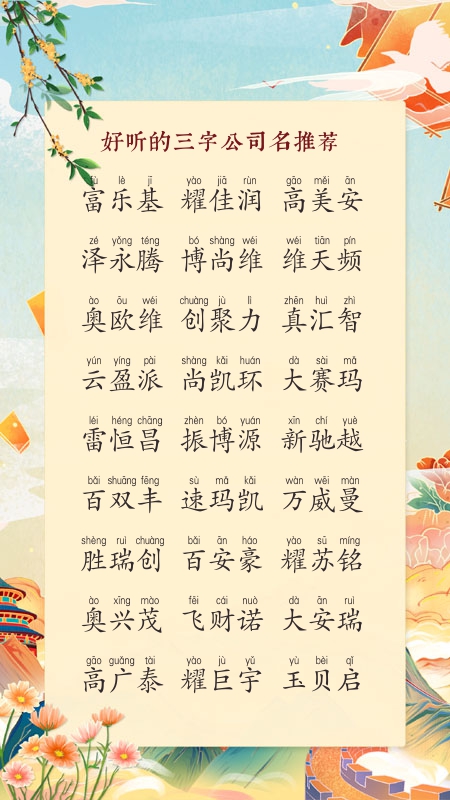 好听的三字公司名推荐
fù lè jī yào jiā rùn gāo měi ān
富乐基 耀佳润 高美安
zé yǒng téng bó shàng wéi wéi tiān pín
泽永腾 博尚维 维天频
ào ōu wéi chuàng jù lì zhēn huì zhì
奥欧维 创聚力 真汇智
yún yíng pài shàng kǎi huán dà sài mǎ
云盈派 尚凯环 大赛玛
léi héng chāng zhèn bó yuán xīn chí yuè
雷恒昌 振博源 新驰越
bǎi shuāng fēng sù mǎ kǎi wàn wēi màn
百双丰 速玛凯 万威曼
shèng ruì chuàng bǎi ān háo yào sū míng
胜瑞创 百安豪 耀苏铭
ào xīng mào fēi cái nuò dà ān ruì
奥兴茂 飞财诺 大安瑞
gāo guǎng tài yào jù yǔ yù bèi qǐ
高广泰 耀巨宇 玉贝启